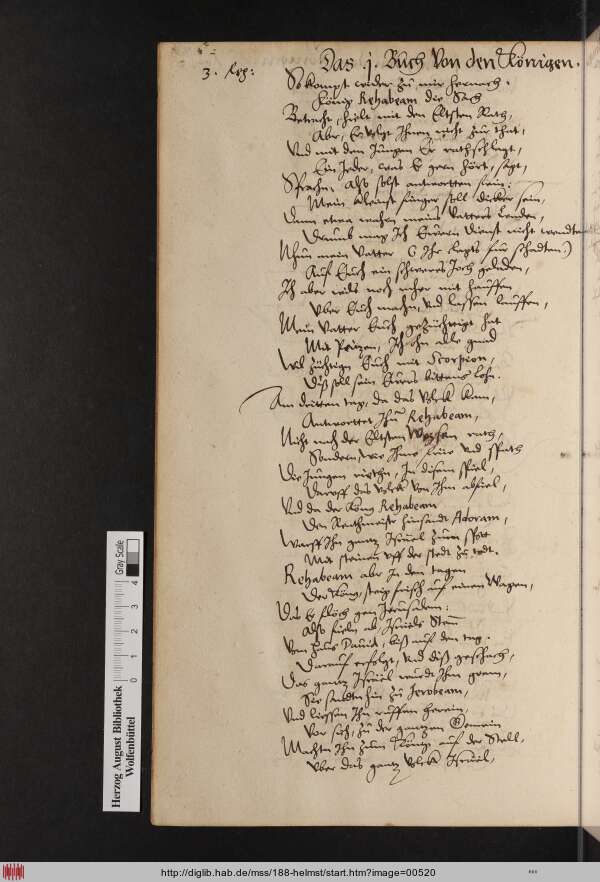 Das .j. Buch Von den Königen.
3. Reg:
So kompt wider zu mir hernach.
König Rehabeam die Sach
Betracht, hielt mit den Eltsten Rath,
Aber, Er volgt Ihnen nicht zur that,
Und mit den Jungen Er rathschlegt,
Ein Jeder, was Er gern hört, sagt,
Sprachn, Also solst antwortten fein:
Mein kleinst finger soll dicker sein,
Dann etwa wahrn meins Vatters Lenden,
Drumb mag Ich Euern dienst nicht
Nhun mein Vatter (Ihr klagts für schaden)
Auff Euch ein schweres Joch geladen,
Ich aber wils noch mher mit hauffen
Uber Euch machn, und lassen lauffen,
Mein Vatter Euch gezüchtigt hat
Mit Peitzen, Ich ohn alle gnad
Wil züchtign Euch mit Scorpion,
Diß soll sein Euers bittens lohn.
Am dritten tag, da das Volck kam,
Antworttet Ihn Rehabeam,
Nicht nach der Eltsten Weysen rath,
Sondern, wie Ihme frue und spath
Die Jungen riethn, In disem spiel,
Darauff das Volck von Ihm abfiel,
Und da der König Rehabeam
Den Rentmeister hinsandt Adoram,
Warff Ihn gantz Israel zum spott
Mit steinen uff der stedt zu todt.
Rehabeam aber In den tagen
Der König, steig frisch auf einen Wagen,
Das Er flöch gen Jerusalem:
Also fieln ab Israels Stem̄
Vom Haus Dauid, biß auf den tag.
Darauf erfolgt, und diß geschach,
Das gantz Israel wurdt Ihm gram,
Sie sandten hin zu Jerobeam,
Und liessen Ihn ruffen herein,
Vor sich, zu der gantzen Gemein
Machtn Ihn zum König auf der Stell,
Uber das gantz Volck Israel,
Gray Scale
0 1 2 3 4
Herzog August Bibliothek
Wolfenbüttel
http://diglib.hab.de/mss/188-helmst/start.htm?image=00520